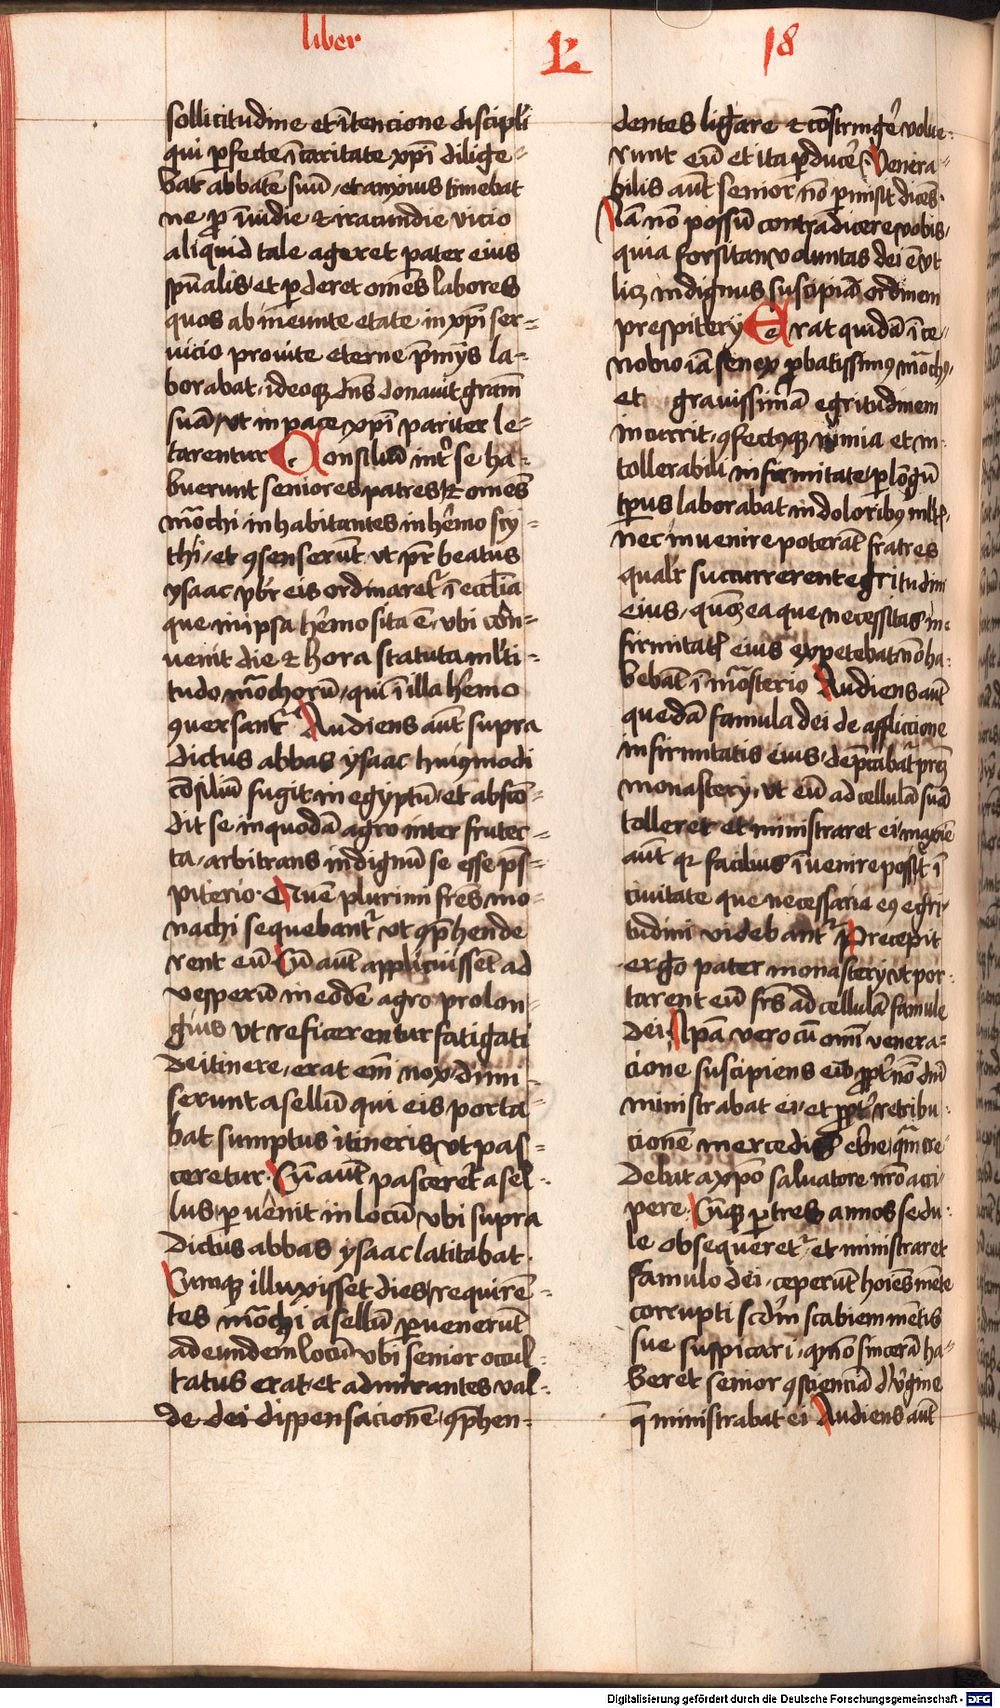 liber
18
sollicitudine et ītencione discipl'i
qui pfecte ī caritate xp̄i dilige-
bat abbatē suū et anxius timebat
ne p̱ īuidie & iracundie vicio
aliquid tale ageret pater eius
sp̄ualis et pderet om̄es labores
quos ab ineunte etate in xp̄i ser-
uicio pro uite eterne p̄mijs la-
borabat ideoqȝ dn̄s donauit gram̄
suā ut in pace xp̄i pariter le-
tarentur Consiliū int' se ha-
buerunt seniores patres & omēs
mōchi inhabitantes in h'emo scy-
thi et ꝯsenserūt vt pr̄ beatus
ysaac pb'r eis ordinaret' ī eccl'ia
que in ipsa h'emo sita ē vbi con-
uenit die & hora statuta ml'ti-
tudo mōchorū qui ī illa h'emo
ꝯuersant' Audiens aūt supra
dictus abbas ysaac huiꝯmodi
cōsiliū fugit in egyptū et abscō-
dit se in quodā agro inter frutec-
ta arbitrans indignū se esse p̄s-
piterio Quē plurimi fr̄es mo-
nachi sequebant' vt ꝯp̄hende
rent eū Cū aūt applicuissēt ad
vesperū in eodē agro prolon-
gius vt reficerentur fatigati
de itinere erat em̄ nox dimi-
serunt asellū qui eis porta-
bat sumptus itineris vt pas-
ceretur Cū aūt pasceret' asel-
lus puenit in locū vbi supra
dictus abbas ysaac latitabat
Cumqȝ illuxisset dies requirē-
tes mōchi asellū puenerūt
ad eundem locū vbi senior occul-
tatus erat et admirantes val-
de dei dispensacionē ꝯp̄hen-
dentes ligare & cōstring'e volue-
runt eū et ita pduc'e Venera-
bilis aūt senior nō pmisit dicēs
Iā nō possū contradicere vobis
quia forsitan voluntas dei ē vt
licȝ indignus suscipiā ordinem
prespiterij Erat quidā ī ce-
nobio iā senex pbatissimꝯ mōchꝯ
et grauissimā egritudinem
incurrit ꝯfectꝯqȝ nimia et in
tollerabili infirmitate p longū
tp̄us laborabat in doloribꝯ ml't'
nec inuenire poterāt fratres
qualr̄ succurrerent egritudini
eius quō ea que necessitas in-
firmitat' eius expetebat nō ha-
bebāt ī mōsterio Audiens aūt
quedā famula dei de affliccione
infirmitatis eius dep̄cabat' prē
monasterij vt eū ad cellulā suā
tolleret et ministraret ei maxīe
aūt qȝ facilius īuenire possit ī
ciuitate que necessaria eꝯ egri-
tudini videbant' Precepit
ergo pater monasterij vt por-
tarent eū frs̄ ad cellulā famule
dei Ipā vero cū omī venera-
cione suscipiens eū ppt' nōē dn̄i
ministrabat ei et ppt' retribu-
cionē mercedis et'ne quā cre-
debat a xp̄o saluatore nr̄o acci
pere Cūqȝ p tres annos sedu-
le obsequeret' et ministraret
famulo dei ceperūt hoīes mēte
corrupti scd̄m scabiem mētis
sue suspicari qȝ nō sincerā ha-
beret senior ꝯscienciā d' v'gine
q̄ ministrabat ei Audiens aūt
Digitalisierung gefördert durch die Deutsche Forschungsgemeinschaft - DFG